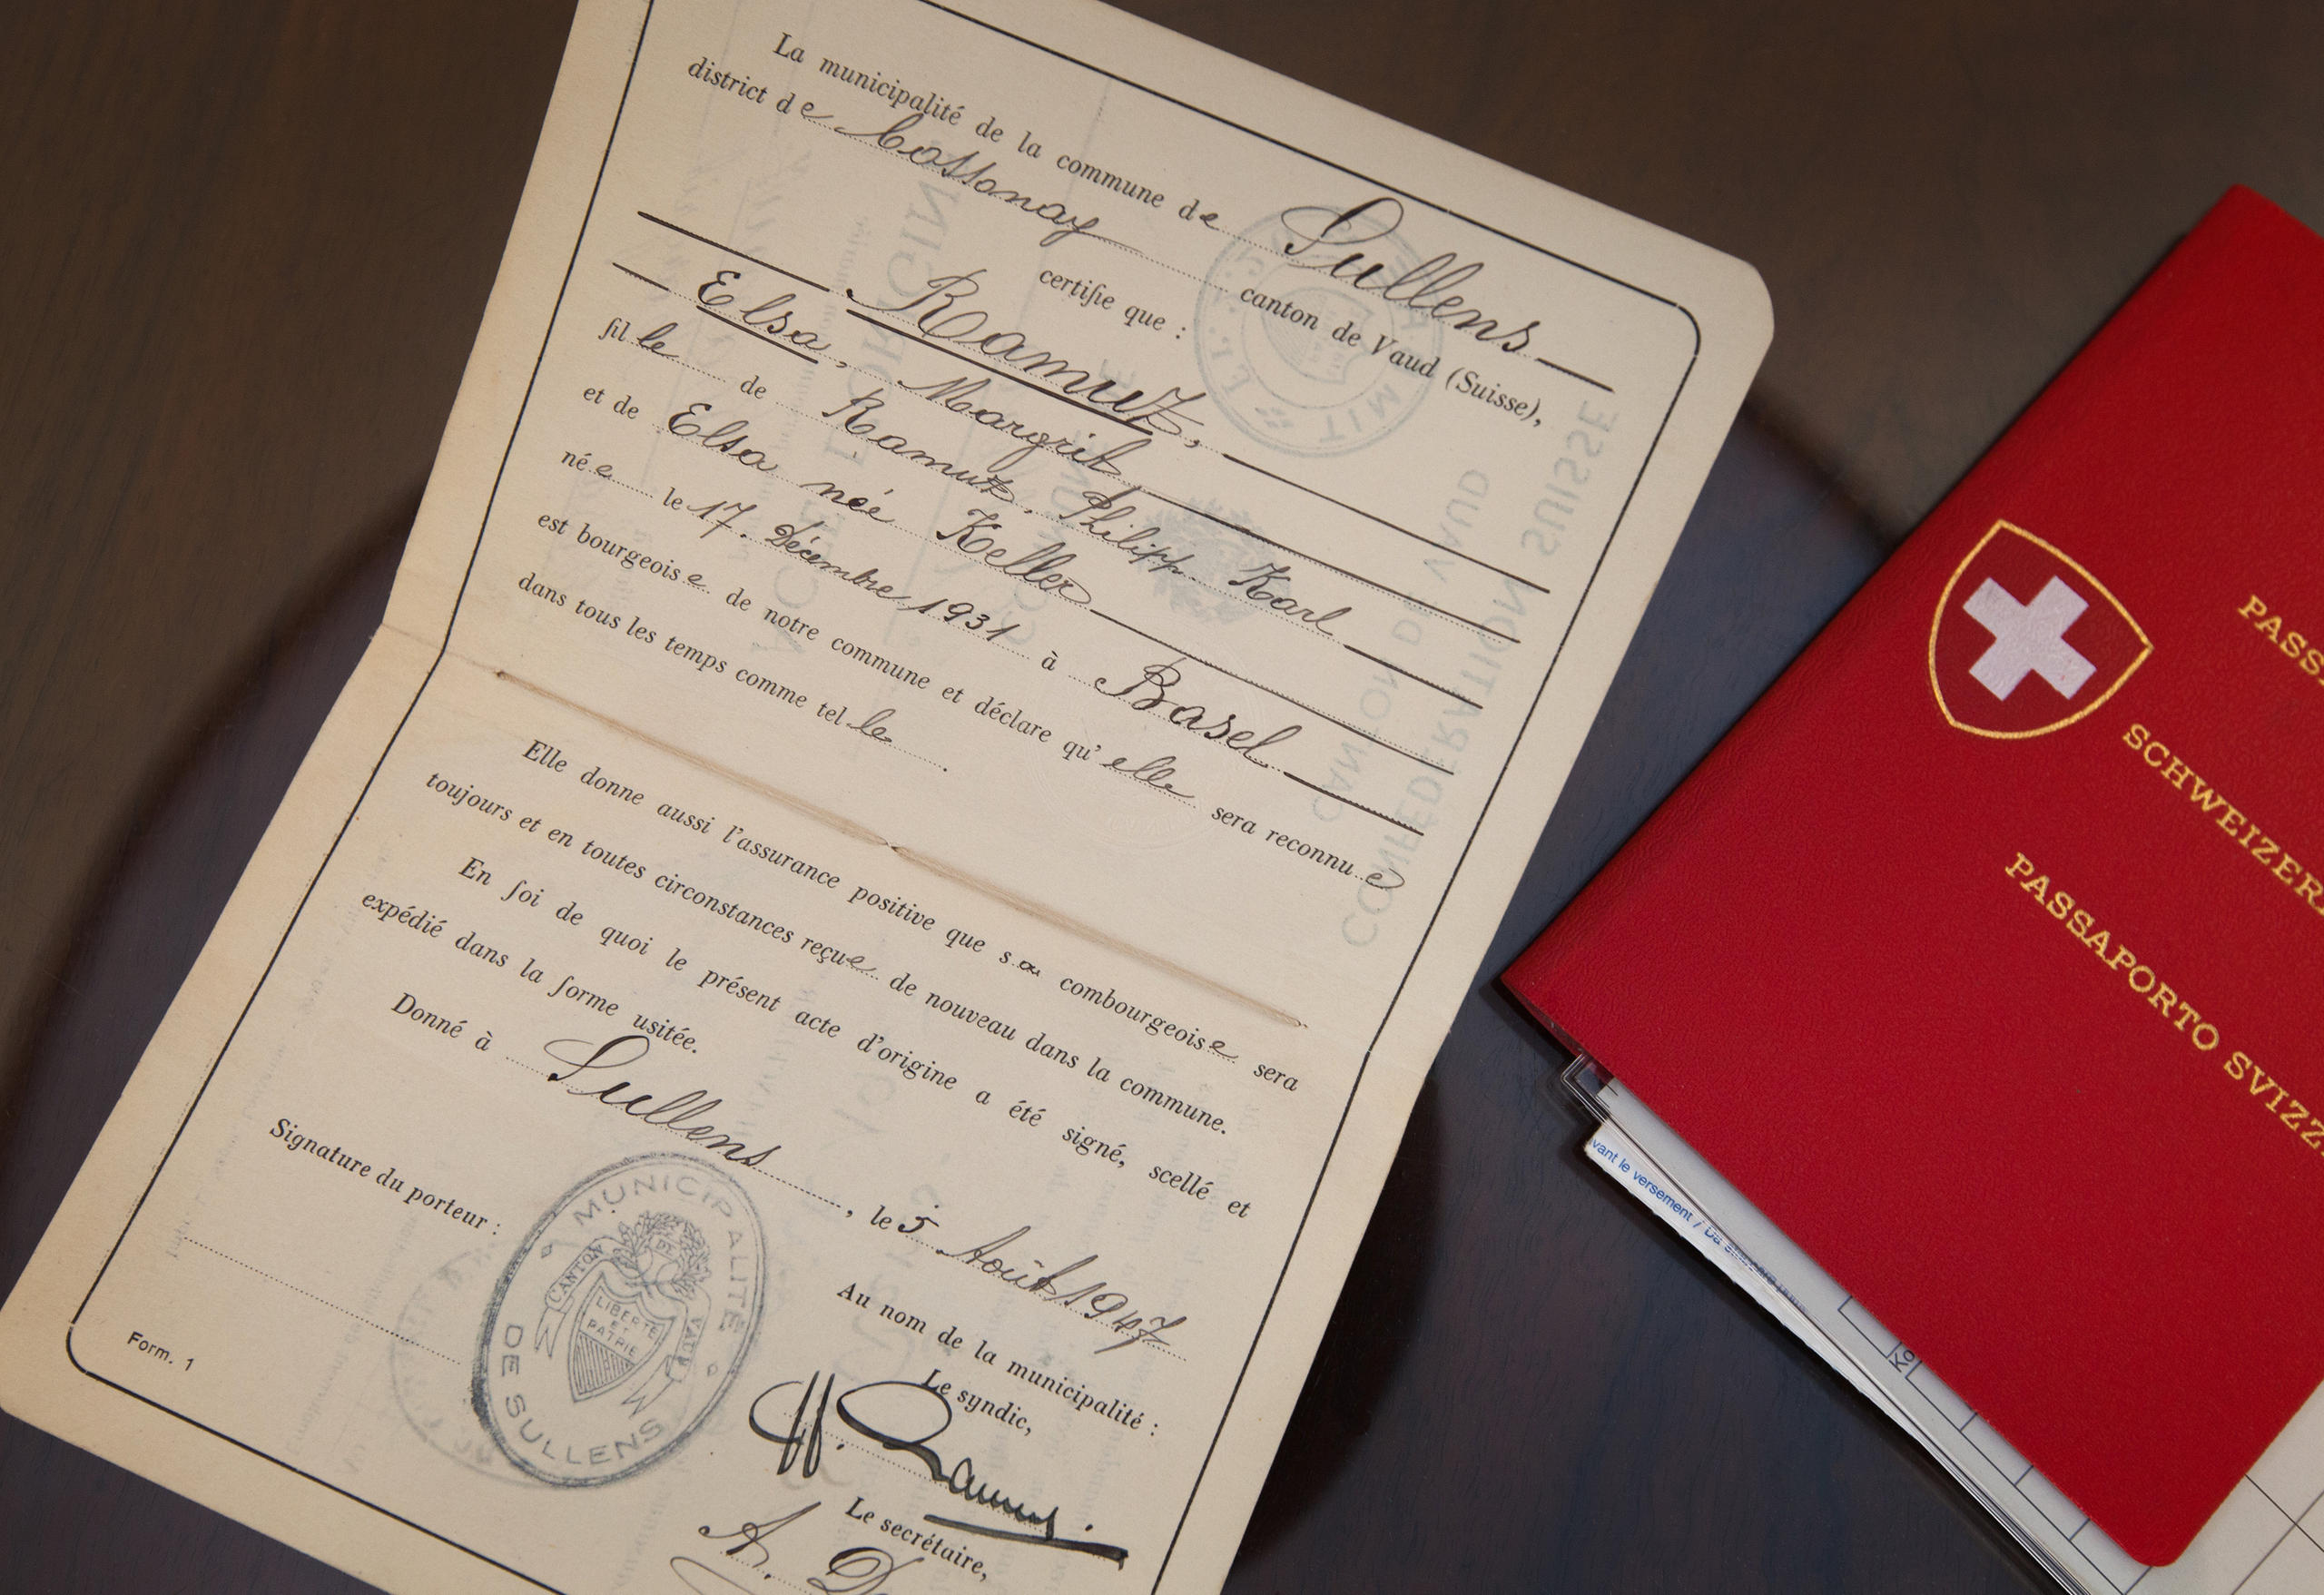 La municipalité de la commune de Sullens
district de Cossonay canton de Vaud (Suisse),
certifie que :
Ramuz,
Elsa, Margrit
fille de Ramuz, Philipp Karl
et de Elsa née Keller
née le 17. Décembre 1931 à Basel
est bourgeoise de notre commune et déclare qu'elle sera reconnue
dans tous les temps comme telle.
Elle donne aussi l'assurance positive que sa combourgeoise sera
toujours et en toutes circonstances reçue de nouveau dans la commune.
En foi de quoi le présent acte d'origine a été signé, scellé et
expédié dans la forme usitée.
Donné à Sullens, le 5 Août 1947
Signature du porteur :
Au nom de la municipalité :
Le syndic,
Le secrétaire,
A.
Form. 1
MUNICIPALITÉ
DE SULLENS
CANTON DE VAUD
LIBERTÉ
ET
PATRIE
CONFÉDÉRATION SUISSE
CANTON DE VAUD
SCHWEIZER
PASSAPORTO SVIZZ
vant le versement /